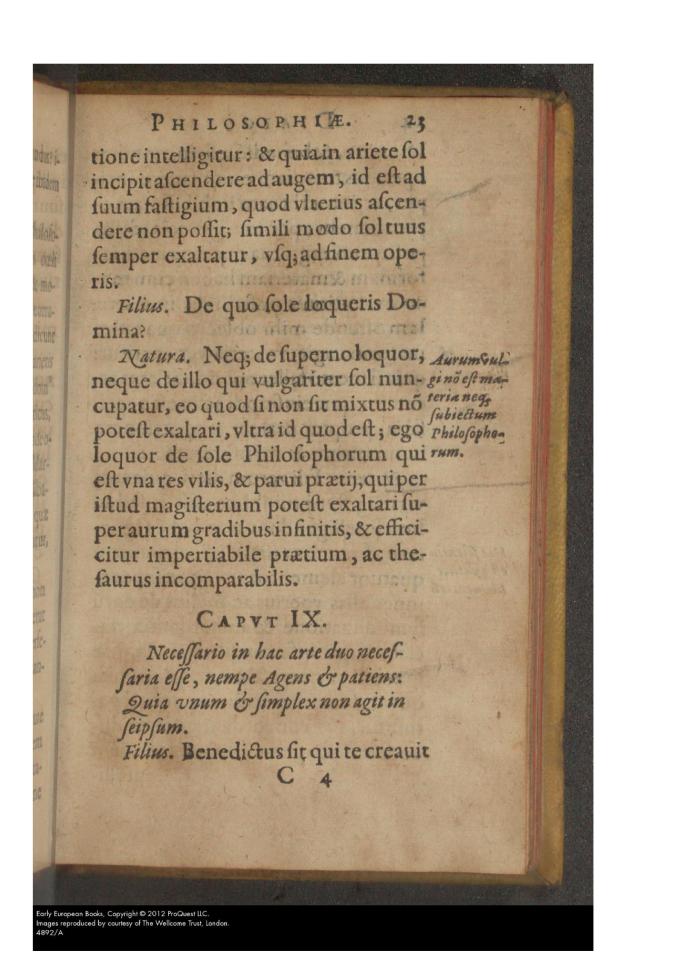 PHILOSOPHIÆ. 23
tione intelligitur: & quia in ariete sol
incipit ascendere ad augem, id est ad
suum fastigium, quod vlterius ascen-
dere non possit; simili modo sol tuus
semper exaltatur, vsq; ad finem ope-
ris.
Filius. De quo sole loqueris Do-
mina?
Natura. Neq; de superno loquor,
neque de illo qui vulgariter sol nun-
cupatur, eo quod si non sit mixtus nõ
potest exaltari, vltra id quod est; ego
loquor de sole Philosophorum qui
est vna res vilis, & parui prætij, qui per
istud magisterium potest exaltari su-
per aurum gradibus infinitis, & effici-
citur impertiabile prætium, ac the-
saurus incomparabilis.
Aurum vul-
gi nõ est ma-
teria neq;
subiectum
Philosopho-
rum.
CAPVT IX.
Necessario in hac arte duo neces-
saria esse, nempe Agens & patiens:
Quia vnum & simplex non agit in
seipsum.
Filius. Benedictus sit qui te creauit
C 4
Early European Books, Copyright © 2012 ProQuest LLC.
Images reproduced by courtesy of The Wellcome Trust, London.
4892/A